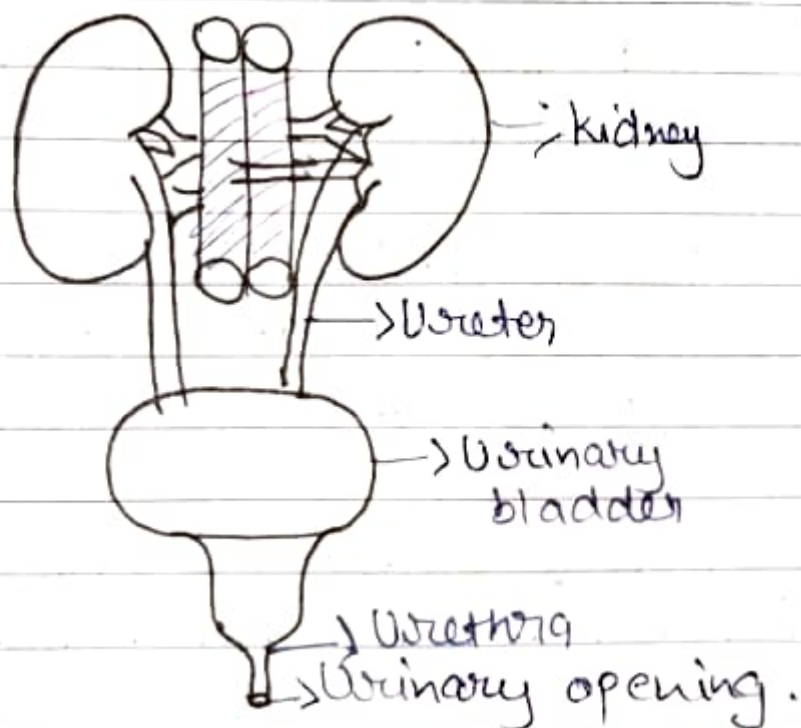 kidney
Ureter
Urinary
bladder
Urethra
Urinary opening.